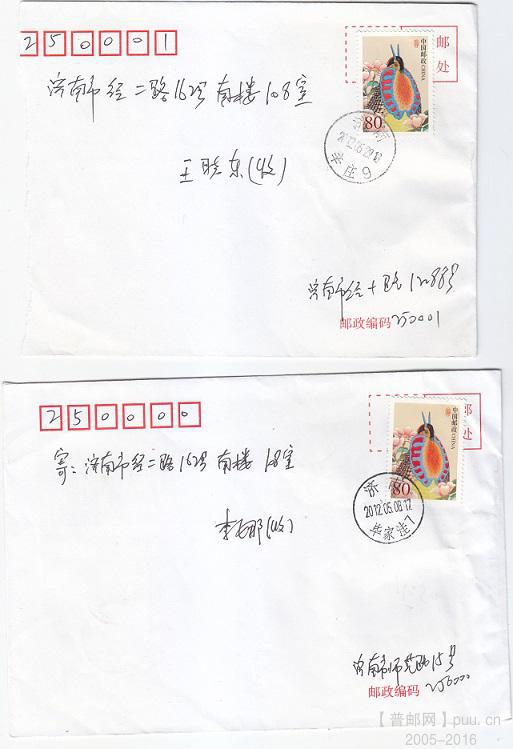 250001
邮
处
中国邮政 CHINA
80
济南市经二路162号 南楼108室
2012.05.29.18
辛庄9
王晓东(收)
济南市经十路12888号
邮政编码 250001
250000
邮
处
中国邮政 CHINA
80
寄:济南市经二路162号 南楼108室
济南
2012.05.08.17
华家洼7
(收)
济南市师范路15号
邮政编码 250000
【普邮网】puu.cn
2005-2016